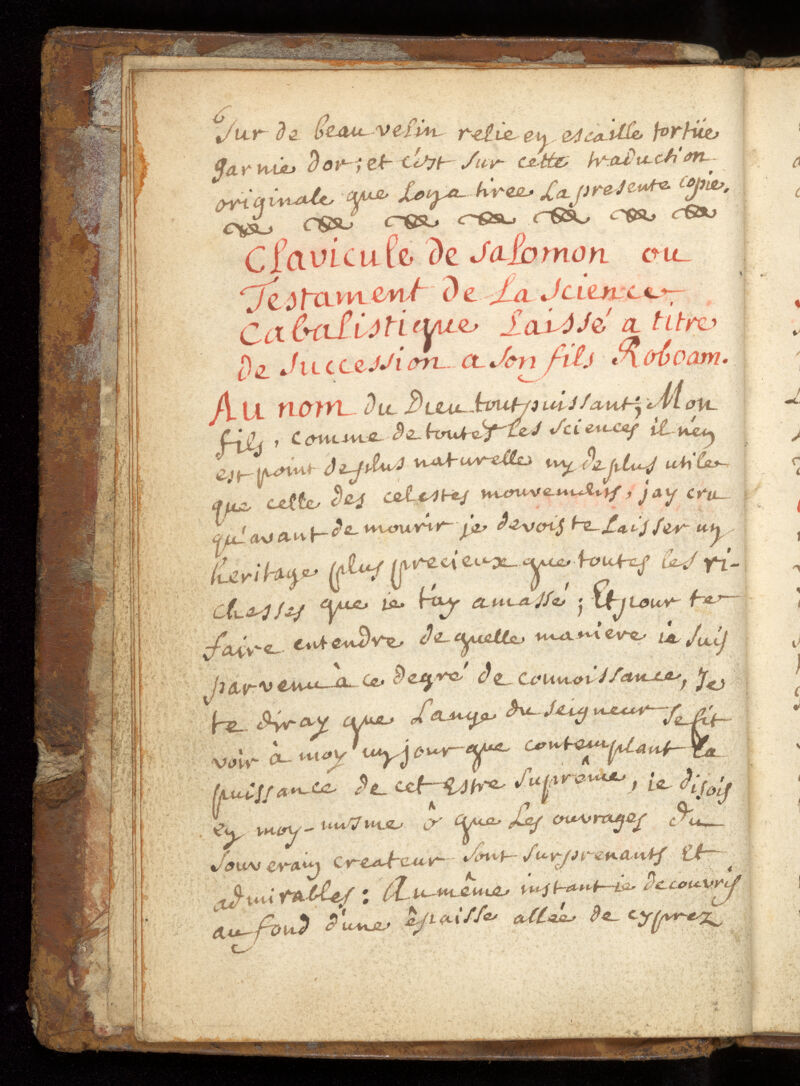 Sur de beau velin relie en escaille tortüe
garnie d'or; et c'est sur cette traduction
originale que l'on a tiree la presente copie.
Clavicule de Salomon ou
Testament de La Science
Cabalistique Laissé a titre
de succession a son fils Roboam.
Au nom du Dieu tout puissant; Mon
fils, comme de toutes les sciences il n'en
est point de plus naturelle ny de plus utile
que celle des celestes mouvements, j'ay cru
qu'avant de mourir je devois te laisser un
heritage plus precieux que toutes les ri-
chesses que ie t'ay amassé; Et pour te
faire entendre de quelle maniere ie suis
parvenu à ce degré de connoissance, Je
te diray que L'ange du Seigneur se fit
voir à moy un jour que contemplant la
puissance de cet Estre Suprême, ie disois
en moy-mesme ô que Les ouvrages du
Souverain createur sont surprenants Et
admirables: Au même instant ie decouvris
au fond d'une êpaisse allée de cyprez